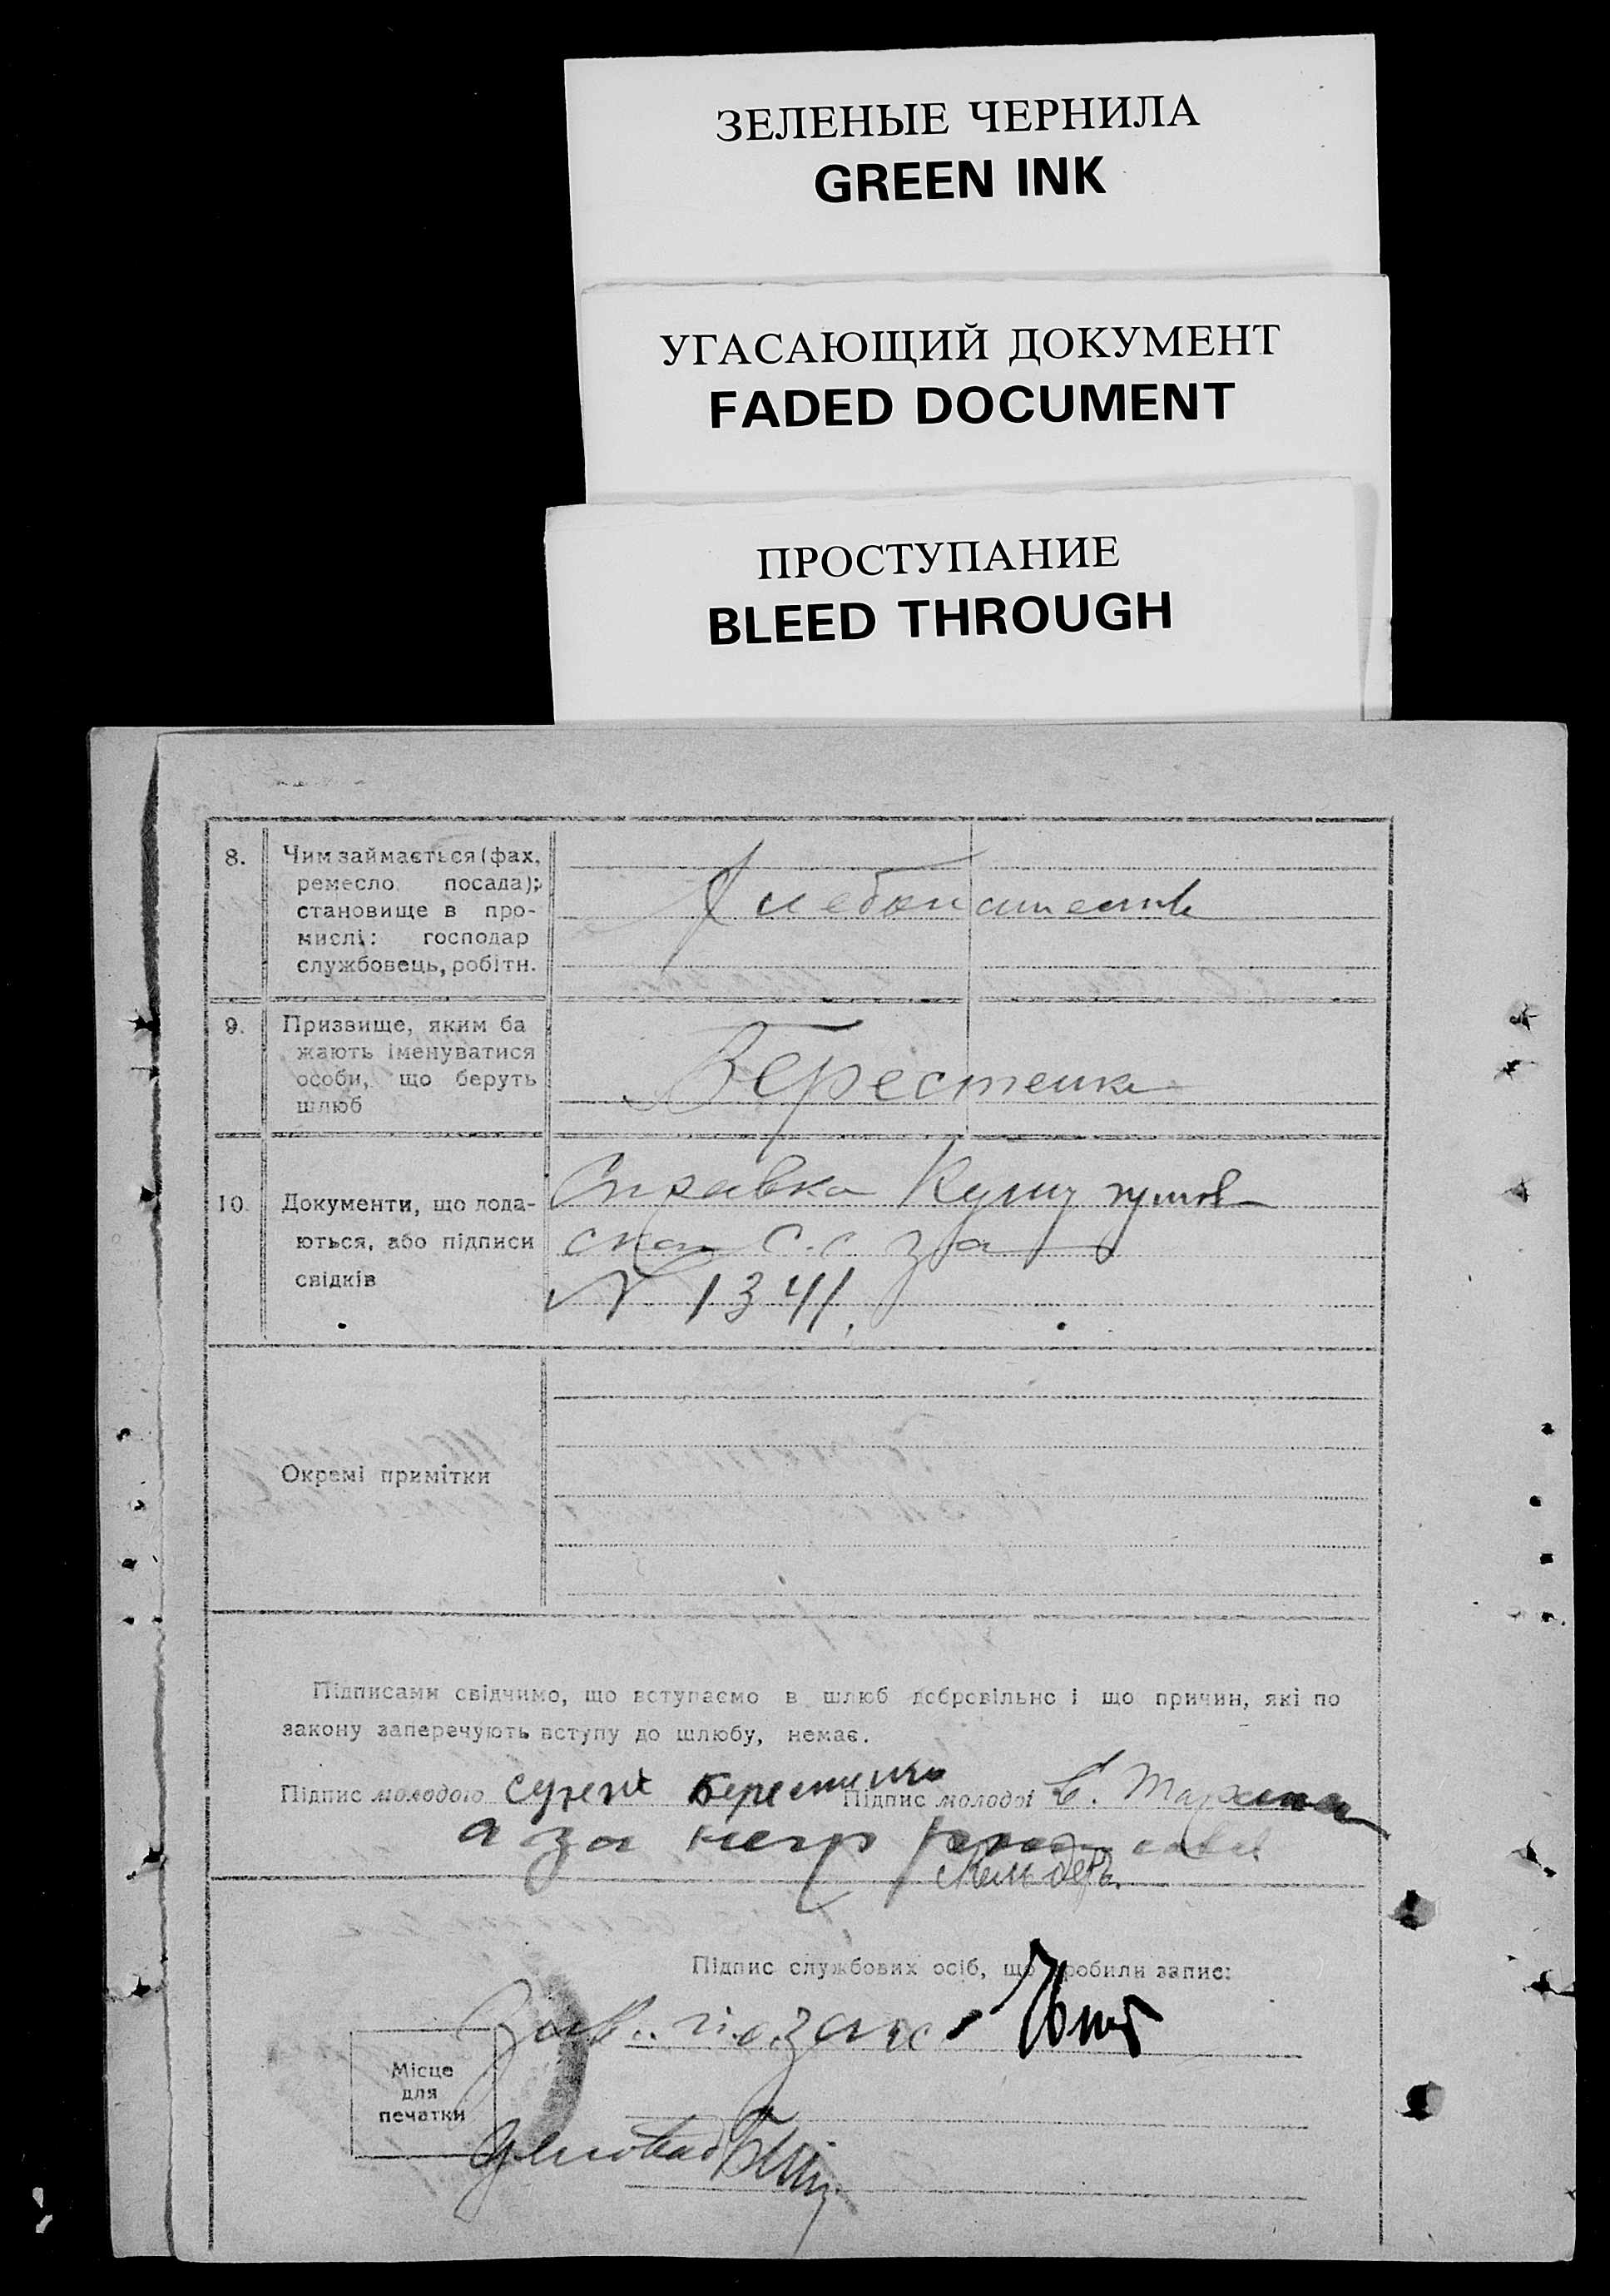 ЗЕЛЕНЫЕ ЧЕРНИЛА
GREEN INK
УГАСАЮЩИЙ ДОКУМЕНТ
FADED DOCUMENT
ПРОСТУПАНИЕ
BLEED THROUGH
8. Чим займається (фах,
ремесло посада);
становище в про-
мислі: господар
службовець, робітн.
9. Призвище, яким ба
жають іменуватися
особи, що беруть
шлюб
Берестенко
10. Документи, що пода-
ються, або підписи
свідків
Справка
с.с за
№ 1341.
Окремі примітки
Підписами свідчимо, що вступаємо в шлюб добровільно і що причин, які по
закону заперечують вступу до шлюбу, немає.
Підпис молодого Берестенко Підпис молодої
а за
Підпис службових осіб, що робили запис:
Місце
для
печатки